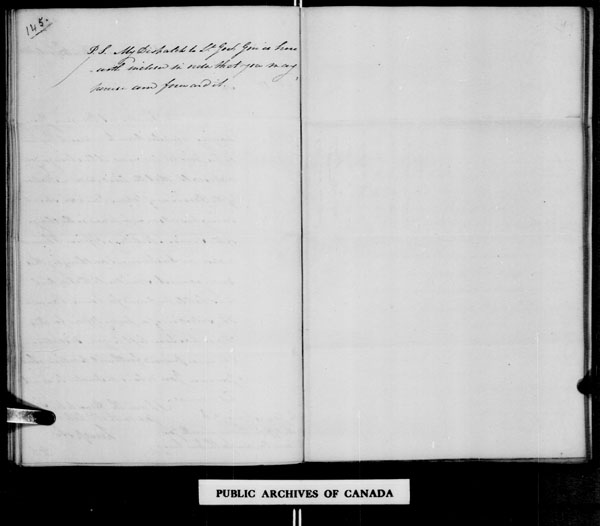 145.
P.S. My Dispatch to Lt Govr Gore is here
with inclosed in order that you may
peruse and forward it.
PUBLIC ARCHIVES OF CANADA